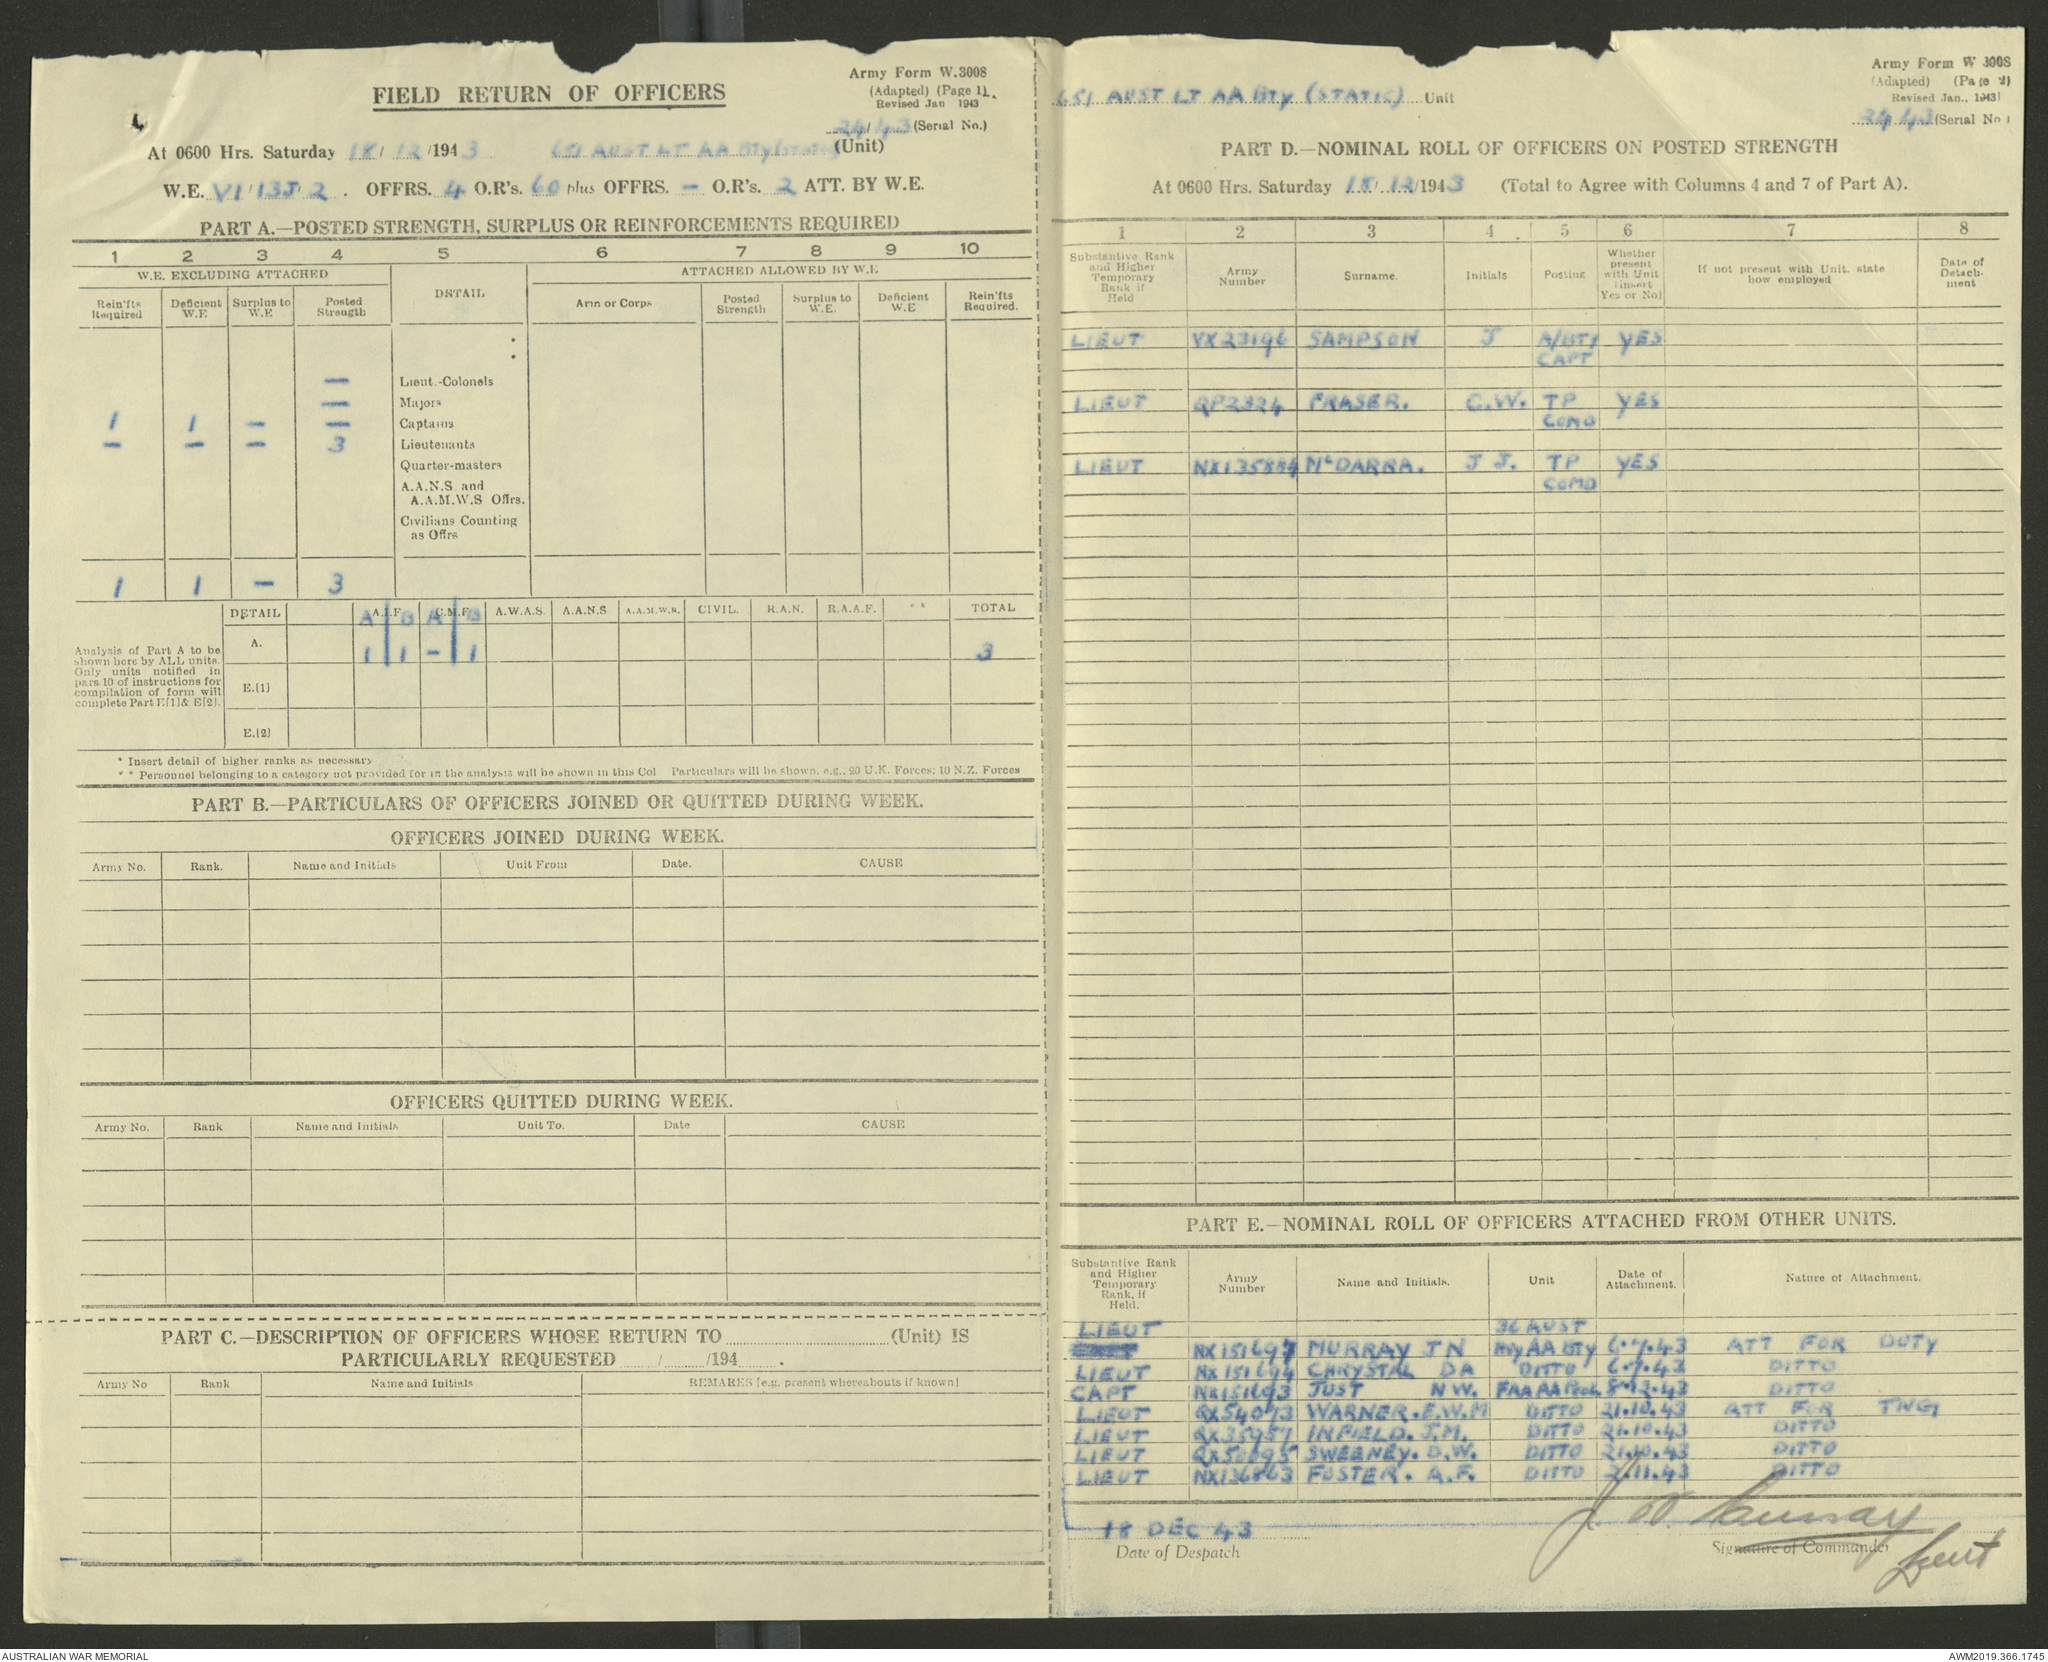 FIELD RETURN OF OFFICERS
Army Form W.3008
(Adapted) (Page 1)
Revised Jan 1943
24/43 (Serial No.)
At 0600 Hrs. Saturday 18/12/1943 651 AUST LT AA Bty (Static) (Unit)
W.E. VI/13J/2. OFFRS. 4 O.R's. 60 plus OFFRS. - O.R's. 2 ATT. BY W.E.
PART A.—POSTED STRENGTH, SURPLUS OR REINFORCEMENTS REQUIRED
1 2 3 4 5 6 7 8 9 10
W.E. EXCLUDING ATTACHED DETAIL ATTACHED ALLOWED BY W.E
Rein'fts Required Deficient W.E Surplus to W.E Posted Strength Arm or Corps Posted Strength Surplus to W.E. Deficient W.E Rein'fts Required.
— Lieut.-Colonels
— Majors
1 1 — — Captains
— — — 3 Lieutenants
Quarter-masters
A.A.N.S. and
A.A.M.W.S Offrs.
Civilians Counting
as Offrs
1 1 — 3
DETAIL A.I.F. C.M.F. A.W.A.S. A.A.N.S A.A.M.W.S. CIVIL. R.A.N. R.A.A.F. ** TOTAL
A B A B
A. 1 1 - 1 3
Analysis of Part A to be
shown here by ALL units.
Only units notified in
para 10 of instructions for
compilation of form will
complete Part E[1]& E[2].
E.(1)
E.(2)
* Insert detail of higher ranks as necessary
** Personnel belonging to a category not provided for in the analysis will be shown in this Col Particulars will be shown, e.g., 20 U.K. Forces; 10 N.Z. Forces
PART B.—PARTICULARS OF OFFICERS JOINED OR QUITTED DURING WEEK.
OFFICERS JOINED DURING WEEK.
Army No. Rank. Name and Initials Unit From Date. CAUSE
OFFICERS QUITTED DURING WEEK.
Army No. Rank Name and Initials Unit To. Date CAUSE
PART C.—DESCRIPTION OF OFFICERS WHOSE RETURN TO (Unit) IS
PARTICULARLY REQUESTED / /194 .
Army No Rank Name and Initials REMARKS [e.g. present whereabouts if known]
651 AUST LT AA Bty (STATIC) Unit
Army Form W 3008
(Adapted) (Page 2)
Revised Jan., 1943
24/43 (Serial No)
PART D.—NOMINAL ROLL OF OFFICERS ON POSTED STRENGTH
At 0600 Hrs. Saturday 18/12/1943 (Total to Agree with Columns 4 and 7 of Part A).
1 2 3 4 5 6 7 8
Substantive Rank and Higher Temporary Rank if Held Army Number Surname. Initials Posting Whether present with Unit (insert Yes or No) If not present with Unit, state how employed Date of Detach-ment
LIEUT VX23196 SAMPSON J A/BTY YES
CAPT
LIEUT QP2324 FRASER. C.W. TP YES
COMD
LIEUT NX135884 McDARRA. J J. TP YES
COMD
PART E.—NOMINAL ROLL OF OFFICERS ATTACHED FROM OTHER UNITS.
Substantive Rank and Higher Temporary Rank, if Held. Army Number Name and Initials. Unit Date of Attachment. Nature of Attachment.
LIEUT 36 AUST
NX151697 MURRAY J N Hvy AA BTY 6.7.43 ATT FOR DUTY
LIEUT NX151694 CHRYSTAL DA DITTO 6.7.43 DITTO
CAPT NX151693 JUST NW. 8.12.43 DITTO
LIEUT QX54073 WARNER. E.W.M DITTO 21.10.43 ATT FOR TNG
LIEUT QX35957 INFIELD. J.M. DITTO 21.10.43 DITTO
LIEUT QX50695 SWEENEY. D.W. DITTO 21.10.43 DITTO
LIEUT NX136863 FOSTER. A.F. DITTO 2.11.43 DITTO
18 DEC 43
Date of Despatch
J. N. Murray
Signature of Commander
Lieut
AUSTRALIAN WAR MEMORIAL
AWM2019.366.1745